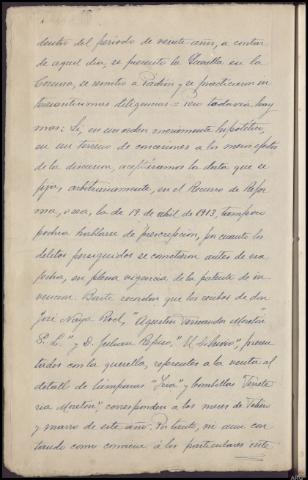 dentro del periodo de veinte años, a contar
de aquel dia, se presentó la Querella en la
Coruña, se remitió a Padrón y se practicaron
diligencias = Pero todavia hay
mas: Si, en un orden meramente hipotético,
en un terreno de concesiones a los meros efectos
de la discusion, aceptáramos la data que se
fija, arbitrariamente, en el Recurso de Refor
ma, o sea, la de 19 de abril de 1913, tampoco
podria hablarse de prescripcion, por cuanto los
delitos perseguidos se cometieron antes de esa
fecha, en plena vigencia de la patente de in
vencion. Baste recordar que los recibos de don
José Noya Rael, "Agustin Fernandez
S. L." y D. Julian "El Siluro", presen
tados con la querella, referentes a la venta al
detall de lámparas "Iria" y bombillas
cia corresponden a los meses de Febrero
y marzo de este año. Por tanto, ni aun con
tando como conviene á los particulares